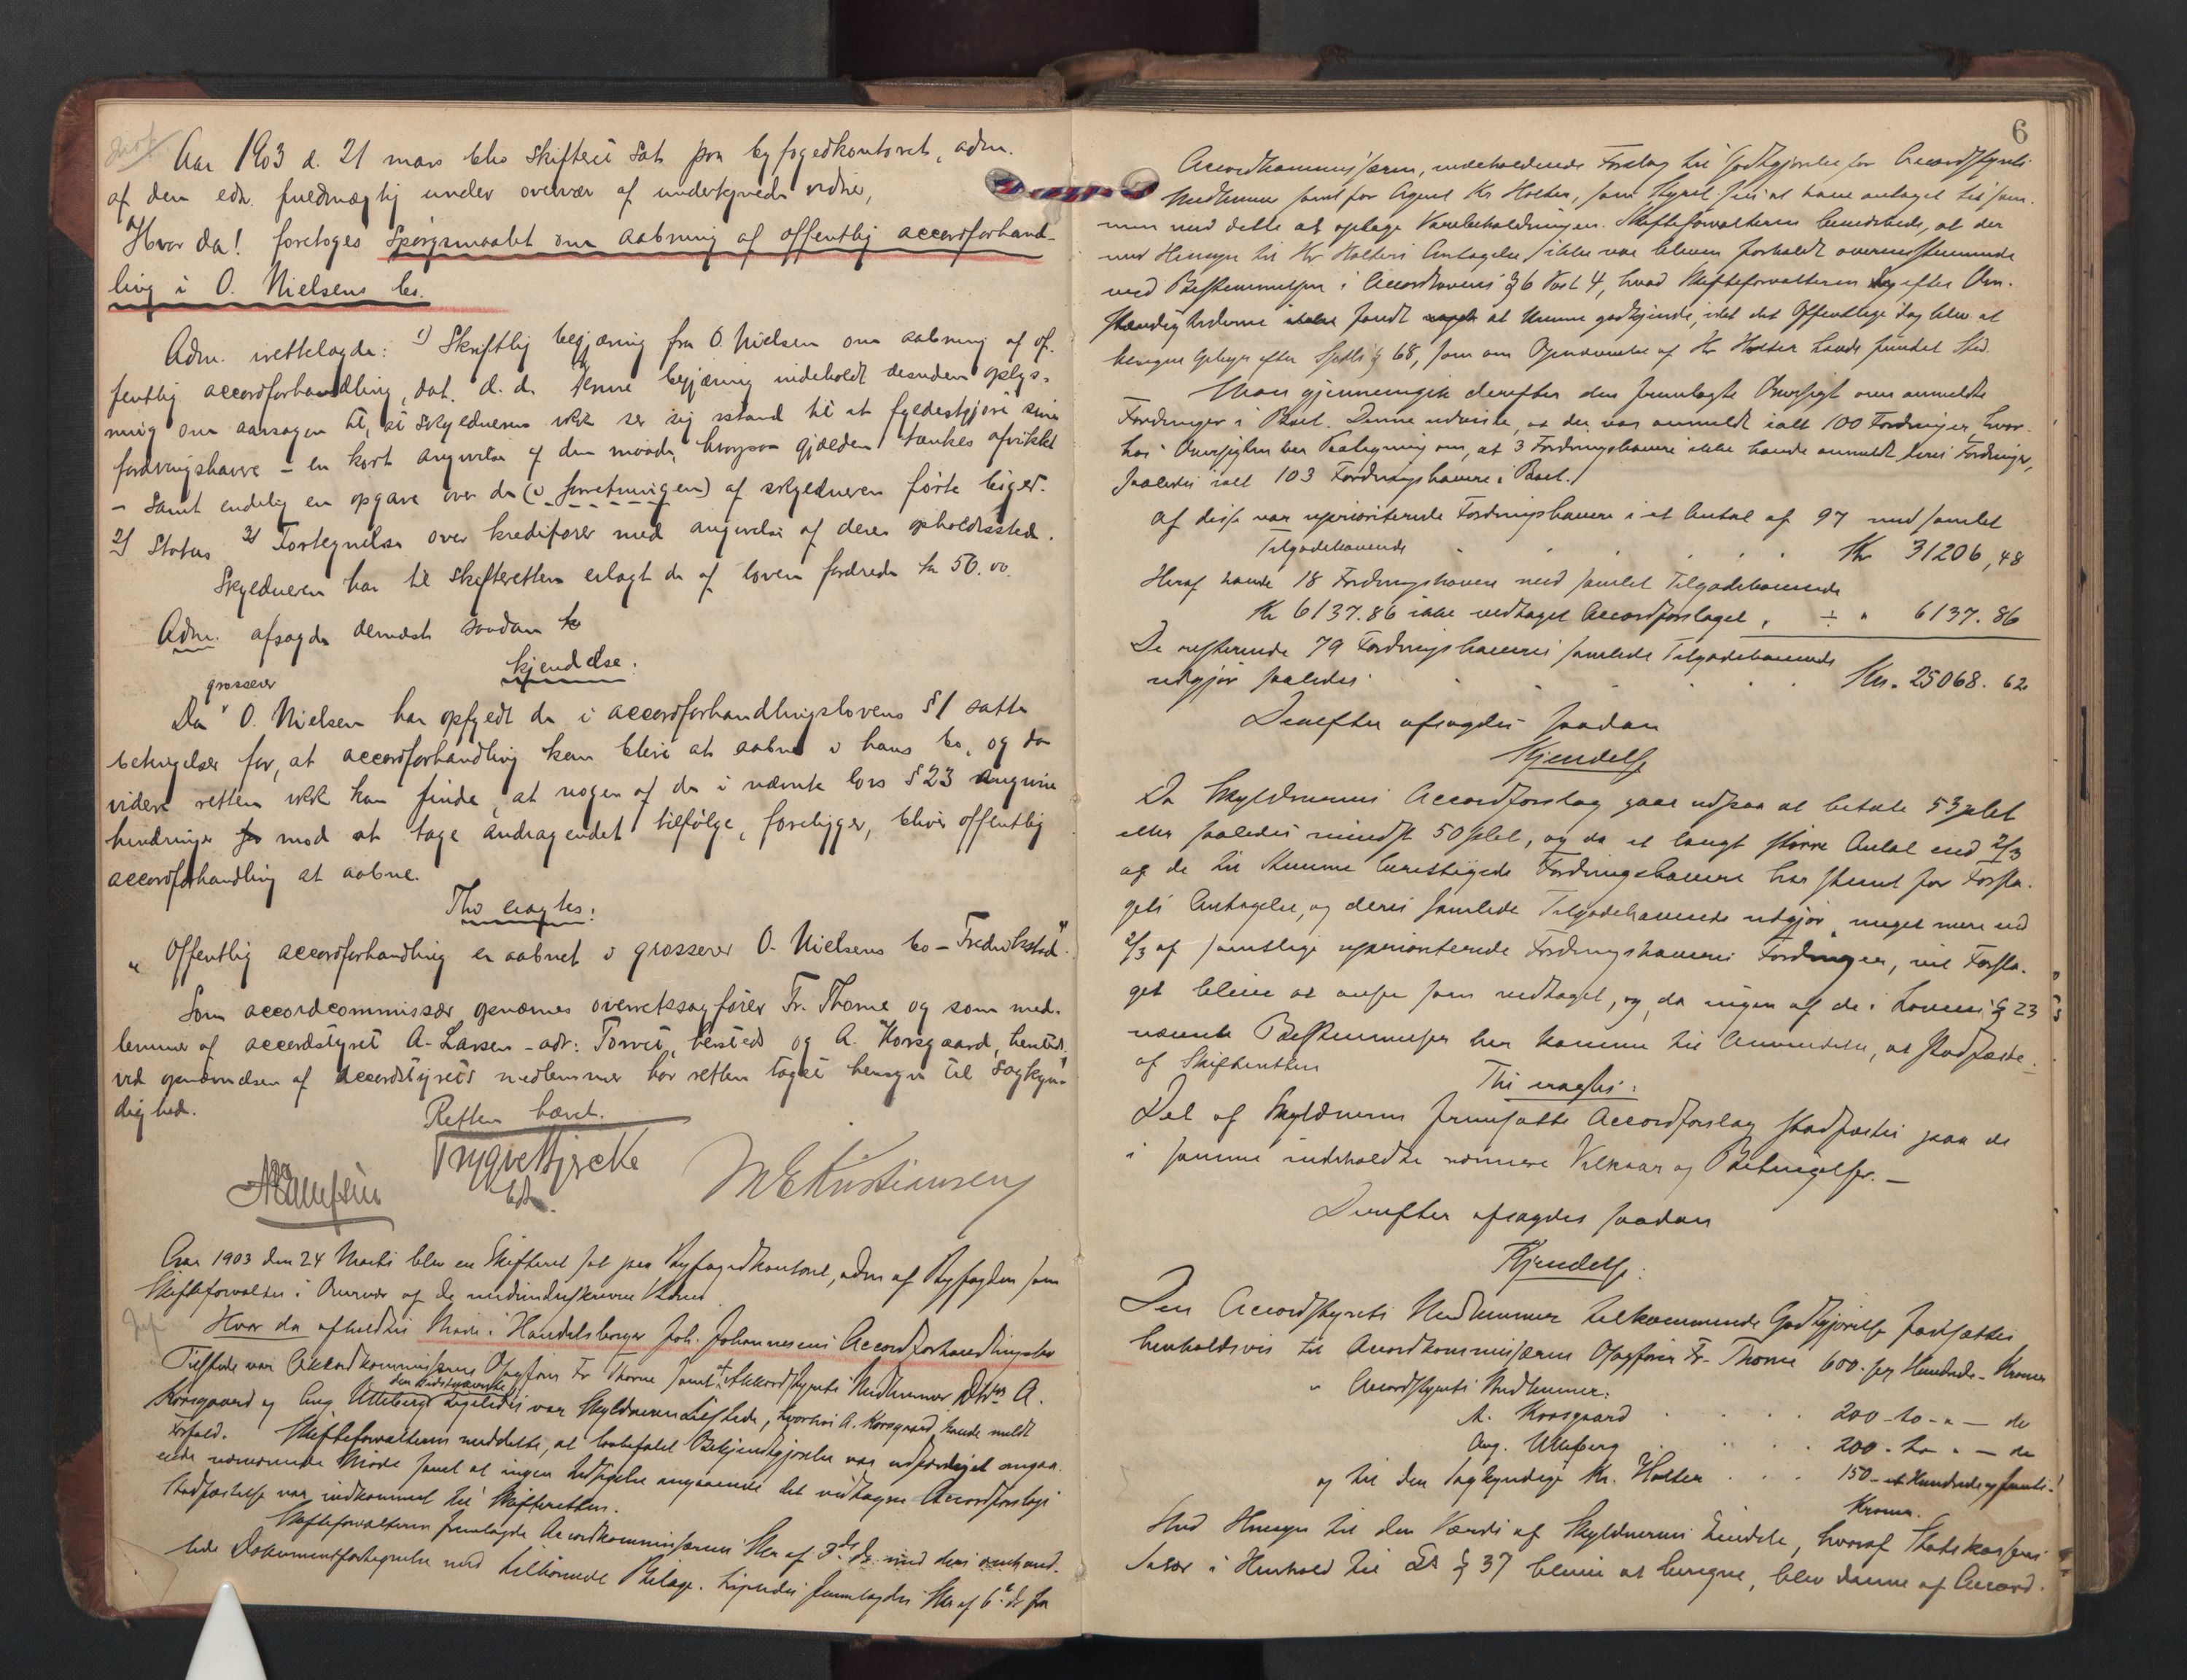 Aar 1903 d. 21 mars blev skifteret sat paa byfogedkontoret, adm.
af den edsv. fuldmægtig under overvær af undertegnede vidner,
Hvor da! foretoges Spørgsmaalet om aabning af offentlig accordforhand-
ling i O. Nielsens bo.
Adm. irettelagde: 1) Skriftlig begjæring fra O. Nielsen om aabning af of-
fentlig accordforhandling, dat. d. d. Denne begjæring indeholdt desuden oplys-
ning om aarsagen til, at skyldneren ikke ser sig istand til at fyldestgjøre sine
fordringshavere – en kort angivelse af den maade, hvorpaa gjælden tænkes afviklet
– samt endelig en opgave over de (i forretningen) af skyldneren førte bøger.
2) Status 3) Fortegnelse over kreditorer med angivelse af deres opholdssted.
Skyldneren har til skifteretten erlagt de af loven fordrede kr 50.00.
Adm. afsagde dernæst saadan
kjendelse:
grosserer
Da O. Nielsen har opfyldt de i accordforhandlingslovens § 1 satte
betingelser for, at accordforhandling kan blive at aabne i hans bo, og da
videre retten ikke kan finde, at nogen af de i nævnte lovs § 23 angivne
hindringer mod at tage andragendet tilfølge, foreligger, bliver offentlig
accordforhandling at aabne.
Thi eragtes:
"Offentlig accordforhandling er aabnet i grosserer O. Nielsens bo – Fredrikstad".
Som accordcommissær opnævnes overretssagfører Fr. Thorne og som med-
lemmer af accordstyret A. Larsen – adr: Torvet, herst​eds og A. Korsgaard, herst​eds.
ved opnævnelsen af accordstyrets medlemmer har retten taget hensyn til sagkyn-
dighed.
Retten hævet.
M E Kristiansen
Aar 1903 den 24 Marts blev en Skifteret sat paa Byfogedkontoret, adm af Byfogden som
Skifteforvalter i Overvær af de nedenunderskrevne Vidner
Hvor da afholdtes Møde i Handelsborger Joh. Johannesens Accordforhandlingsbo
Tilstede var Akkordkommissæren Osagfører Fr Thorne samt Akkordstyrets Medlemmer DHrr A.
den sidstnævnte
Korsgaard og Aug. Utteberg. Ligeledes var Skyldneren tilstede, hvorhos A. Korsgaard havde meldt
Forfald. Skifteforvalteren meddelte, at lovbefalet Bekjendtgjørelse var udfærdiget angaa-
ende nærværende Møde samt at ingen Indsigelse angaaende det vedtagne Accordforslags
Stadfæstelse var indkommet til Skifteretten.
Skifteforvalteren fremlagde Accordkommissærens Skr af 3die ds. med deri omhand-
lede Dokumentfortegnelse med tilhørende Bilage. Ligeledes fremlagdes Skr af 6te ds fra
6
Accordkommissæren, indeholdende Forslag til Godtgjørelse for Accordstyrets
Medlemmer samt for Agent Kr Holter, som Styret sees at have antaget til sam-
men med dette at optage Varebeholdningen. Skifteforvalteren bemærkede, at der
med Hensyn til Kr Holters Antagelse ikke var bleven forholdt overensstemmende
med Bestemmelsen i Accordlovens § 6 Post 4, hvad Skifteforvalteren dog efter Om-
stændighederne fandt at kunne godkjende, idet det Offentlige dog blev at
beregne Gebyr efter Sptls § 68, som om Opnævnelse af Kr Holter havde fundet Sted.
Man gjennemgik derefter den fremlagte Oversigt over anmeldte
Fordringer i Boet. Denne udviste, at der var anmeldt ialt 100 Fordringer, hvor-
hos Oversigten har Paategning om, at 3 Fordringshavere ikke havde anmeldt deres Fordringer,
saaledes ialt 103 Fordringshavere i Boet.
Af disse var uprioriterede Fordringshavere i et Antal af 97 med samlet
Tilgodehavende . . . . . . Kr 31206,48
Heraf havde 18 Fordringshavere med samlet Tilgodehavende
Kr 6137.86 ikke vedtaget Accordforslaget, ÷ " 6137.86
De resterende 79 Fordringshaveres samlede Tilgodehavende
udgjør saaledes . . . . . Kr. 25068.62
Derefter afsagdes saadan
Kjendelse
Da Skyldnerens Accordforslag gaar ud paa at betale 53 pCt
eller saaledes mindst 50 pCt, og da et langt større Antal end 2/3
af de til Stemme berettigede Fordringshavere har stemt for Forsla-
gets Antagelse, og deres samlede Tilgodehavende udgjør meget mere end
2/3 af samtlige uprioriterede Fordringshaveres Fordringer, vil Forsla-
get blive at anse som vedtaget, og da ingen af de i Lovens § 23
nævnte Bestemmelser her komme til Anvendelse, at stadfæste
af Skifteretten
Thi eragtes:
Det af Skyldneren fremsatte Accordforslag stadfæstes paa de
i samme indeholdte nærmere Vilkaar og Betingelser. –
Derefter afsagdes saadan
Kjendelse:
Den Accordstyrets Medlemmer tilkommende Godtgjørelse fastsættes
henholdsvis til Accordkommissæren Osagfører Fr. Thorne 600. sex Hundrede – Kroner
" Accordstyrets Medlemmer:
A. Korsgaard . . . . 200 – to – " – do
Aug. Utteberg . . . . 200 – to – " – do
og til den sagkyndige Kr. Holter . . . 150 – et Hundrede og femti –
Kroner.
Med Hensyn til den Værdi af Skyldnerens Eiendele, hvoraf Statskassens
Salær i Henhold til § 37 bliver at beregne, blev denne af Accord-